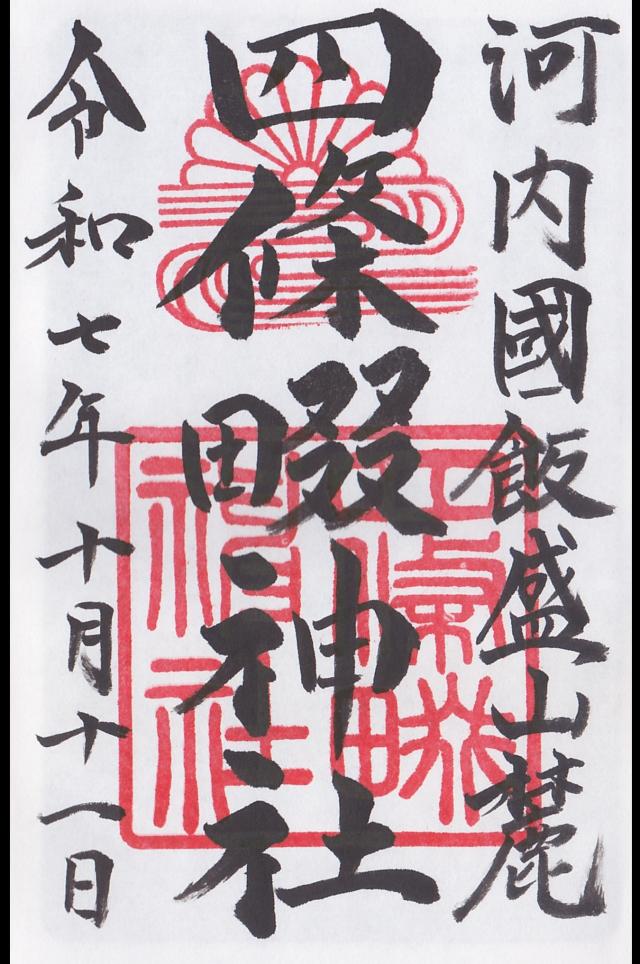 河内國飯盛山麓
四條畷神社
令和七年十月十一日